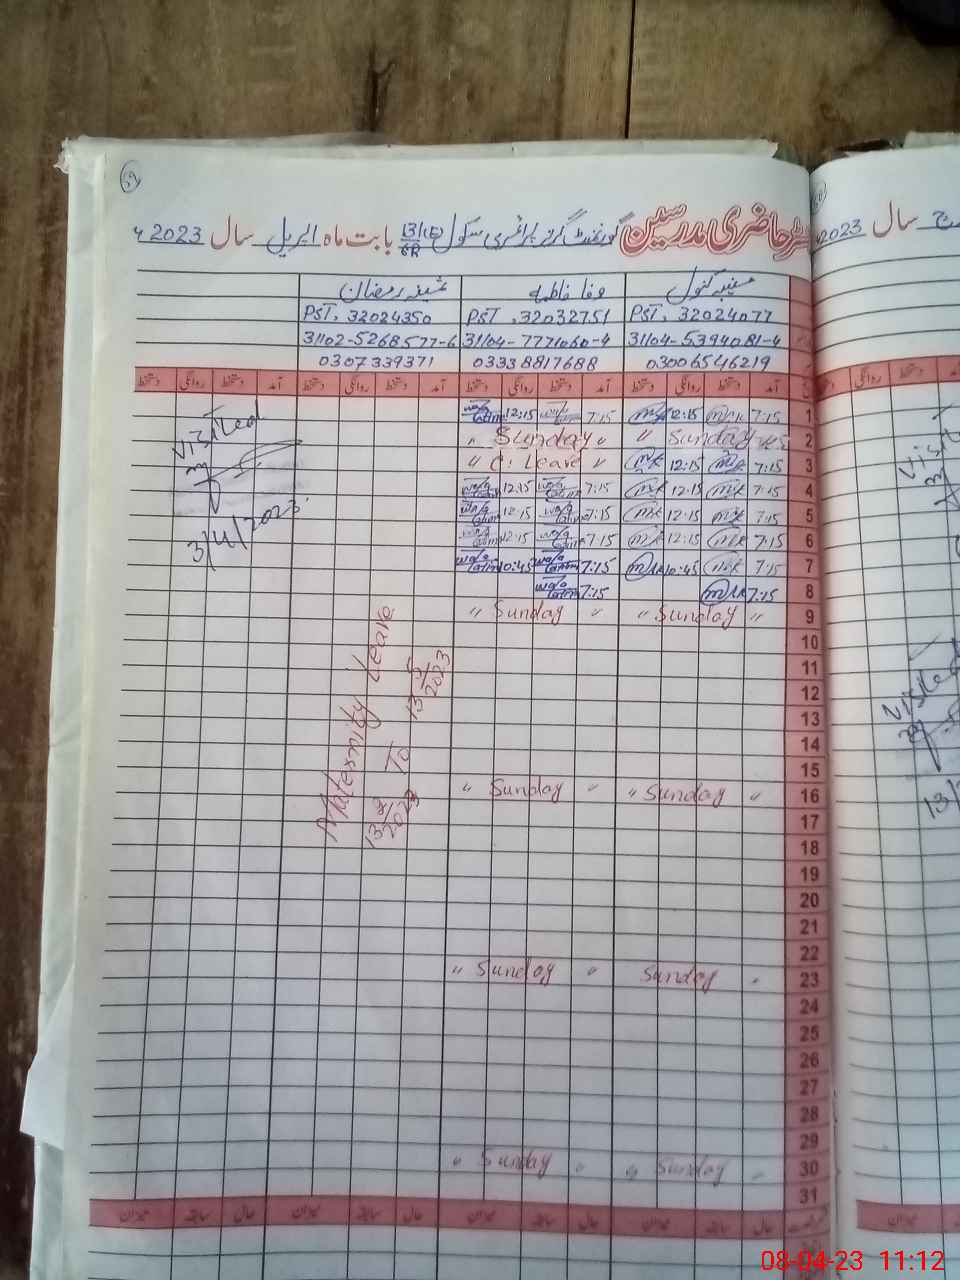 رجسٹر حاضری مدرسین گورنمنٹ گرلز پرائمری سکول 131(E)/6R بابت ماہ اپریل سال 2023ء
2023 سال
فا فاطمہ ثمینہ رمضان
PST, 32024077 PST, 32032751 PST, 32024350
31104-5394081-4 31104-7771060-4 31102-5268577-6
03006546219 03338817688 0307339371
آمد دستخط روانگی دستخط آمد دستخط روانگی دستخط آمد دستخط روانگی دستخط آمد دستخط روانگی دستخط
1 7:15 12:15 7:15 12:15
2 " Sunday " Sunday "
3 7:15 12:15 " C. Leave "
4 7:15 12:15 7:15 12:15
5 7:15 12:15 7:15 12:15
6 7:15 12:15 7:15 12:15
7 7:15 10:45 7:15 10:45
8 7:15 7:15
9 " Sunday " " Sunday "
10
11
12
13
14
15
16 " Sunday " " Sunday "
17
18
19
20
21
22
23 Sunday " " Sunday "
24
25
26
27
28
29
30 " Sunday " " Sunday "
31
visited
3/4/2023
Maternity Leave
13-2-2023 To 13-5-2023
حال سابقہ میزان حال سابقہ میزان حال سابقہ میزان حال سابقہ میزان
visited
13/
08-04-23 11:12